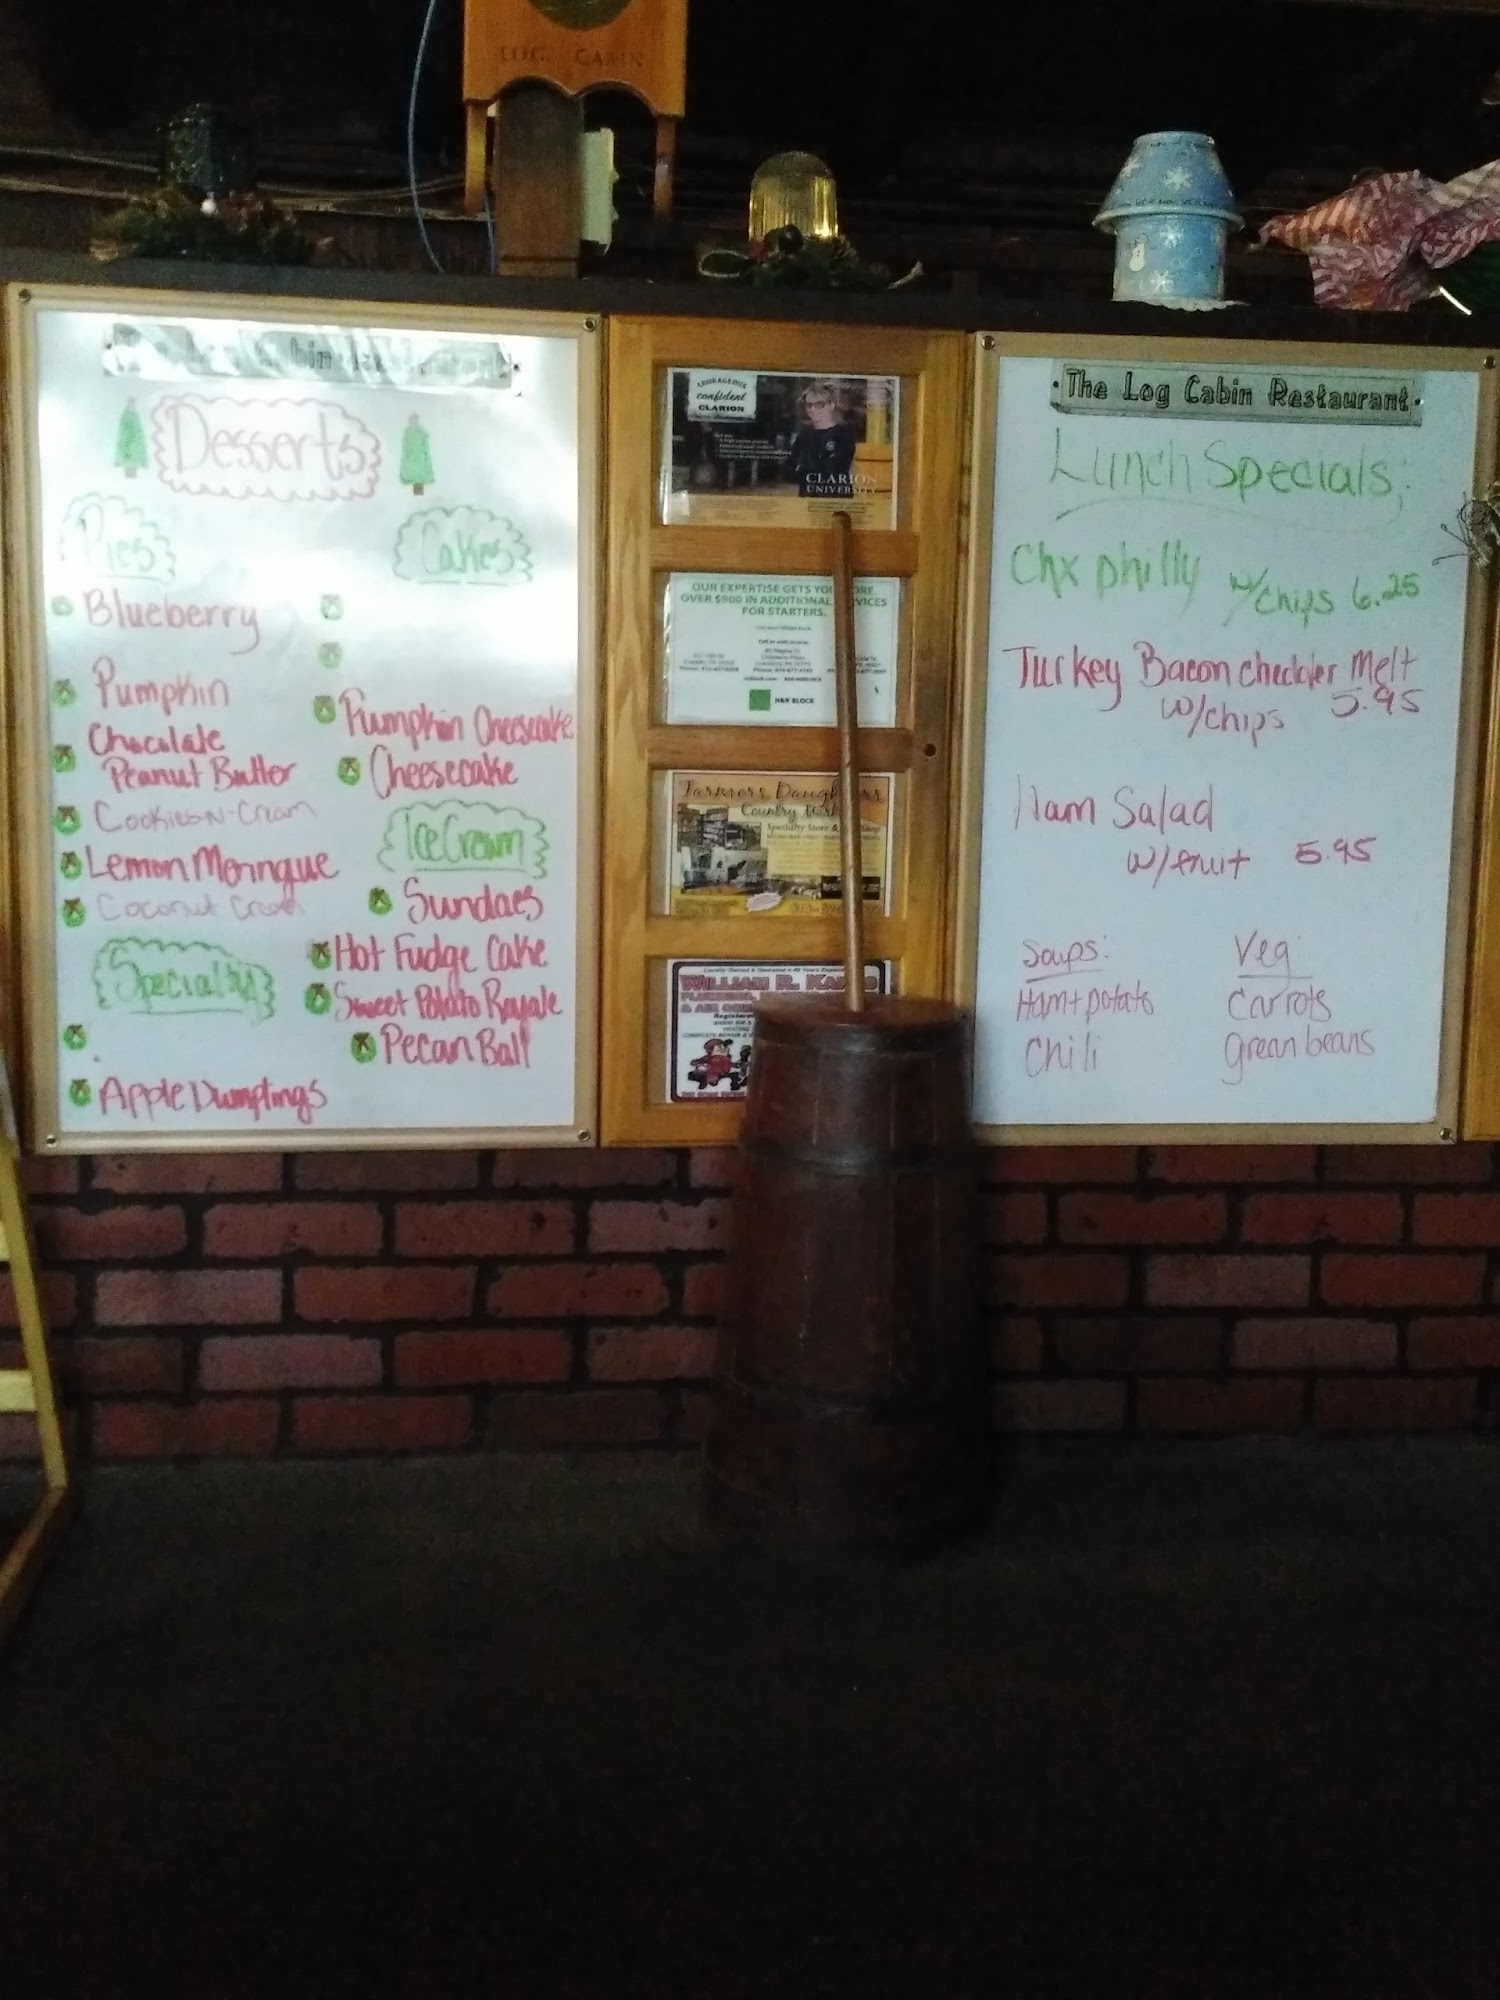 LOG CABIN
The Log Cabin Restaurant
Desserts
Pies
Blueberry
Pumpkin
Chocolate
Peanut Butter
Cookies-N-Cream
Lemon Meringue
Coconut Cream
Specialtys
Apple Dumplings
Cakes
Pumpkin Cheesecake
Cheesecake
Ice Cream
Sundaes
Hot Fudge Cake
Sweet Potato Royale
Pecan Ball
COURAGEOUS
confident
CLARION
CLARION
UNIVERSITY
OUR EXPERTISE GETS YOU
OVER $500 IN ADDITIONAL
FOR STARTERS.
H&R BLOCK
Farmers Daughters
Country
Specialty Store
WILLIAM R.
& AIR
The Log Cabin Restaurant
Lunch Specials;
Chx philly w/chips 6.25
Turkey Bacon cheddar Melt
w/chips 5.95
Ham Salad
w/fruit 5.95
Soups:
Ham+potato
Chili
Veg
Carrots
green beans